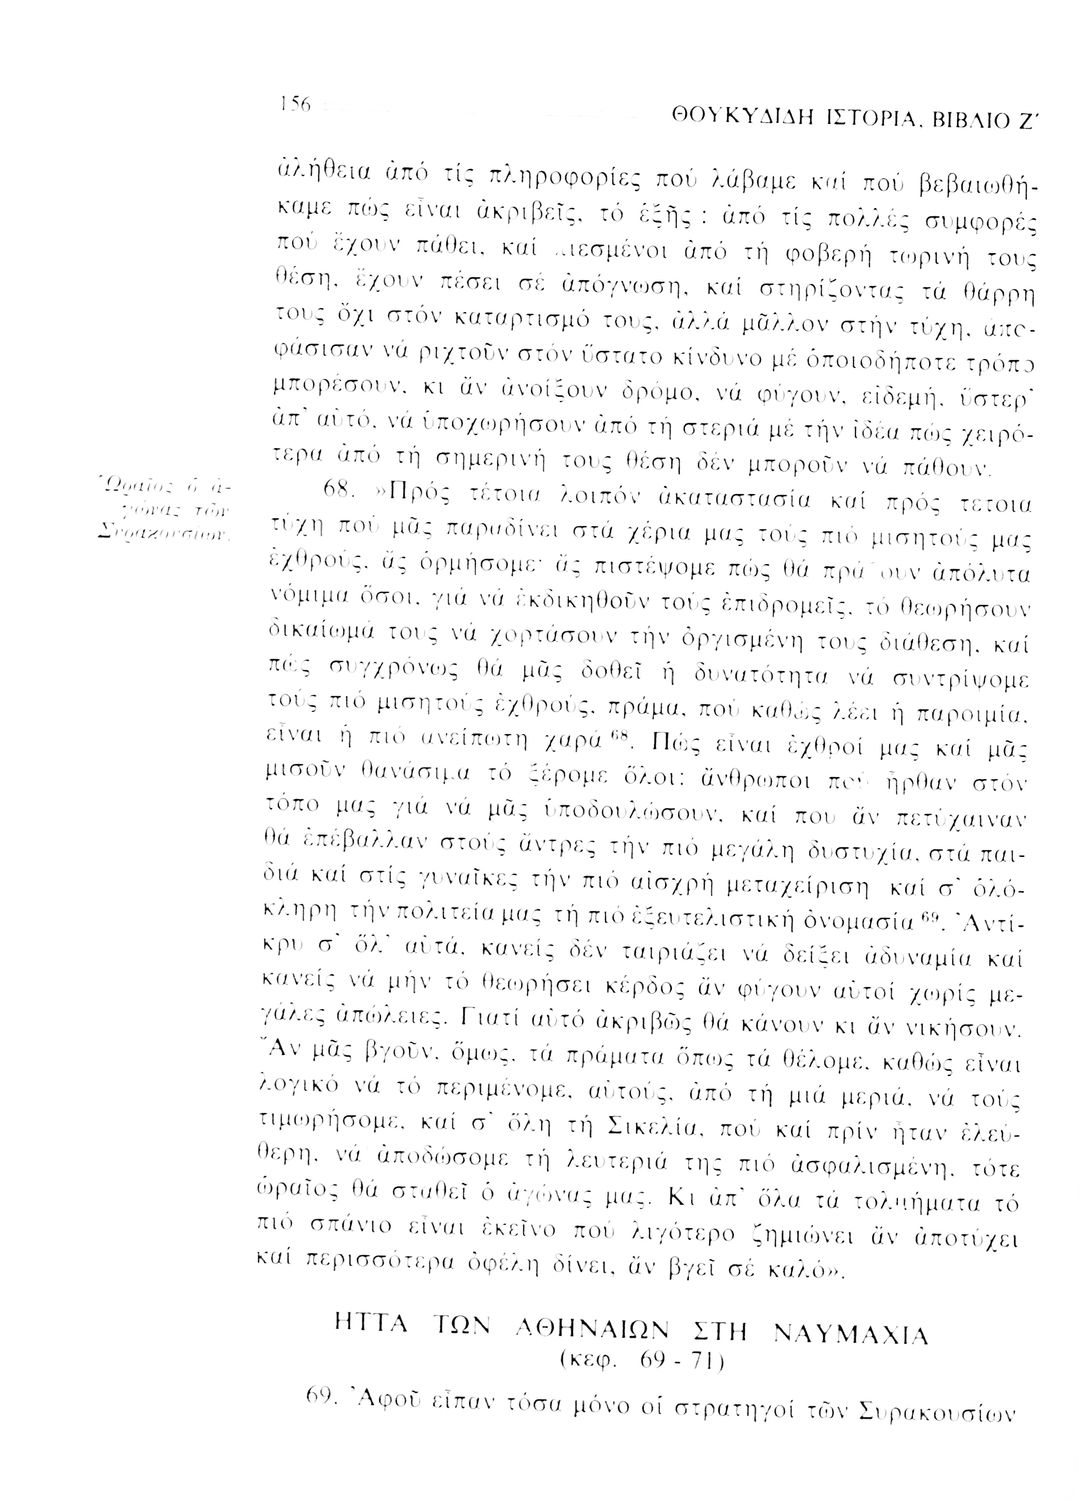 156
ΘΟΥΚΥΔΙΔΗ ΙΣΤΟΡΙΑ, ΒΙΒΛΙΟ Ζ΄
ἀλήθεια ἀπό τίς πληροφορίες πού λάβαμε καί πού βεβαιωθή-
καμε πώς εἶναι ἀκριβεῖς, τό ἑξῆς : ἀπό τίς πολλές συμφορές
πού ἔχουν πάθει, καί ..ιεσμένοι ἀπό τή φοβερή τωρινή τους
θέση, ἔχουν πέσει σέ ἀπόγνωση, καί στηρίζοντας τά θάρρη
τους ὄχι στόν καταρτισμό τους, ἀλλά μᾶλλον στήν τύχη, ἀπο-
φάσισαν νά ριχτοῦν στόν ὕστατο κίνδυνο μέ ὁποιοδήποτε τρόπο
μπορέσουν, κι ἄν ἀνοίξουν δρόμο, νά φύγουν, εἰδεμή, ὕστερ᾽
ἀπ᾽ αὐτό, νά ὑποχωρήσουν ἀπό τή στεριά μέ τήν ἰδέα πώς χειρό-
τερα ἀπό τή σημερινή τους θέση δέν μποροῦν νά πάθουν.
Ὡραῖος ὁ ἀ-
γώνας τῶν
Συρακουσίων.
68. »Πρός τέτοια λοιπόν ἀκαταστασία καί πρός τέτοια
τύχη πού μᾶς παραδίνει στά χέρια μας τούς πιό μισητούς μας
ἐχθρούς, ἄς ὁρμήσομε· ἄς πιστέψομε πώς θά πρά ουν ἀπόλυτα
νόμιμα ὅσοι, γιά νά ἐκδικηθοῦν τούς ἐπιδρομεῖς, τό θεωρήσουν
δικαίωμά τους νά χορτάσουν τήν ὀργισμένη τους διάθεση, καί
πώς συγχρόνως θά μᾶς δοθεῖ ἡ δυνατότητα νά συντρίψομε
τούς πιό μισητούς ἐχθρούς, πράμα, πού καθώς λέει ἡ παροιμία,
εἶναι ἡ πιό ἀνείπωτη χαρά⁶⁸. Πώς εἶναι ἐχθροί μας καί μᾶς
μισοῦν θανάσιμα τό ξέρομε ὅλοι: ἄνθρωποι πού ἦρθαν στόν
τόπο μας γιά νά μᾶς ὑποδουλώσουν, καί που ἄν πετύχαιναν
θά ἐπέβαλλαν στούς ἄντρες τήν πιό μεγάλη δυστυχία, στά παι-
διά καί στίς γυναῖκες τήν πιό αἰσχρή μεταχείριση καί σ᾽ ὁλό-
κληρη τήν πολιτεία μας τή πιό ἐξευτελιστική ὀνομασία⁶⁹. Ἀντί-
κρυ σ᾽ ὅλ᾽ αὐτά, κανείς δέν ταιριάζει νά δείξει ἀδυναμία καί
κανείς νά μήν τό θεωρήσει κέρδος ἄν φύγουν αὐτοί χωρίς με-
γάλες ἀπώλειες. Γιατί αὐτό ἀκριβῶς θά κάνουν κι ἄν νικήσουν.
Ἄν μᾶς βγοῦν, ὅμως, τά πράματα ὅπως τά θέλομε, καθώς εἶναι
λογικό νά τό περιμένομε, αὐτούς, ἀπό τή μιά μεριά, νά τούς
τιμωρήσομε, καί σ᾽ ὅλη τή Σικελία, πού καί πρίν ἦταν ἐλεύ-
θερη, νά ἀποδώσομε τή λευτεριά της πιό ἀσφαλισμένη, τότε
ὡραῖος θά σταθεῖ ὁ ἀγώνας μας. Κι ἀπ᾽ ὅλα τά τολμήματα τό
πιό σπάνιο εἶναι ἐκεῖνο πού λιγότερο ζημιώνει ἄν ἀποτύχει
καί περισσότερα ὀφέλη δίνει, ἄν βγεῖ σέ καλό».
ΗΤΤΑ ΤΩΝ ΑΘΗΝΑΙΩΝ ΣΤΗ ΝΑΥΜΑΧΙΑ
(κεφ. 69 - 71)
69. Ἀφοῦ εἶπαν τόσα μόνο οἱ στρατηγοί τῶν Συρακουσίων